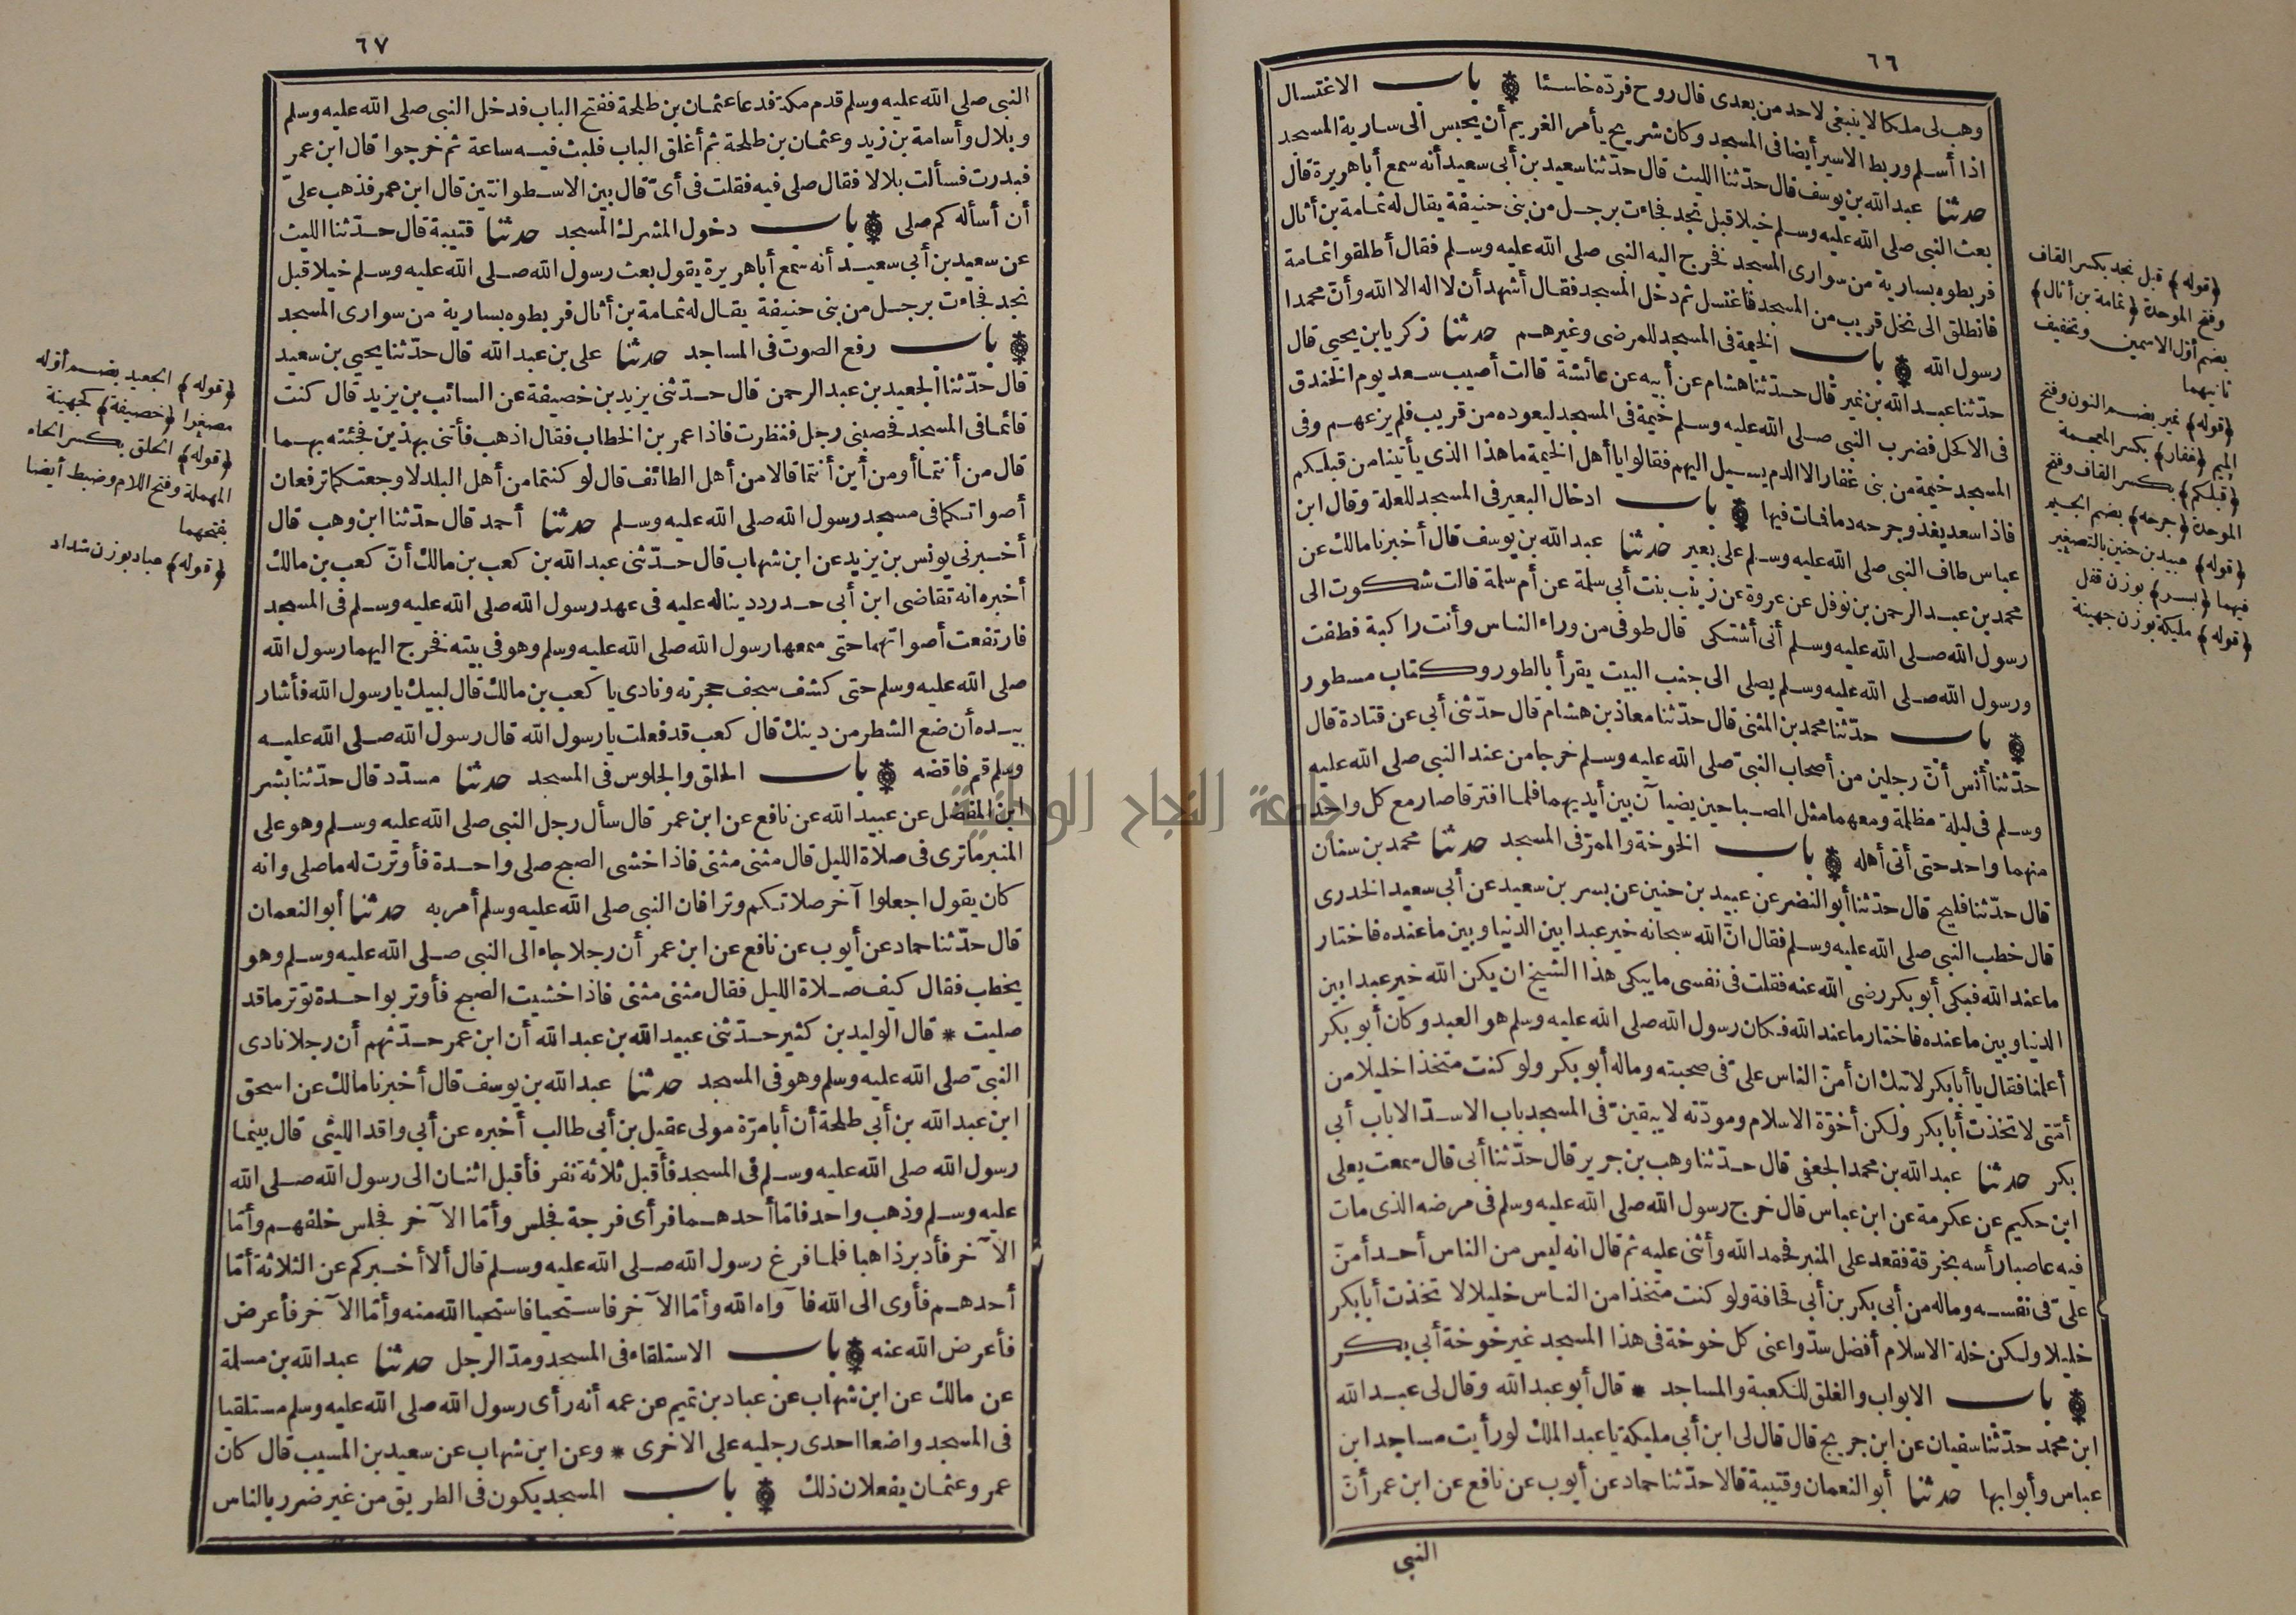 ٦٦
وهب لى ملكا لا ينبغى لاحد من بعدى قال روح فردّه خاسئا باب الاغتسال
اذا أسلم وربط الاسير أيضا فى المسجد وكان شريح يأمر الغريم أن يحبس الى سارية المسجد
حدثنا عبد الله بن يوسف قال حدّثنا الليث قال حدّثنا سعيد بن أبى سعيد أنه سمع أبا هريرة قال
بعث النبى صلى الله عليه وسلم خيلا قبل نجد فجاءت برجل من بنى حنيفة يقال له ثمامة بن أثال
فربطوه بسارية من سوارى المسجد فخرج اليه النبى صلى الله عليه وسلم فقال أطلقوا ثمامة
فانطلق الى نخل قريب من المسجد فاغتسل ثم دخل المسجد فقال أشهد أن لا اله الا الله وأنّ محمدا
رسول الله باب الخيمة فى المسجد للمرضى وغيرهم حدثنا زكريا بن يحيى قال
حدّثنا عبد الله بن نمير قال حدّثنا هشام عن أبيه عن عائشة قالت أصيب سعد يوم الخندق
فى الاكحل فضرب النبى صلى الله عليه وسلم خيمة فى المسجد ليعوده من قريب فلم يزعهم وفى
المسجد خيمة من بنى غفار الا الدم يسيل اليهم فقالوا يا أهل الخيمة ما هذا الذى يأتينا من قبلكم
فاذا سعد يغذو جرحه دما فمات فيها باب ادخال البعير فى المسجد للعلة وقال ابن
عباس طاف النبى صلى الله عليه وسلم على بعير حدثنا عبد الله بن يوسف قال أخبرنا مالك عن
محمد بن عبد الرحمن بن نوفل عن عروة عن زينب بنت أبى سلمة عن أم سلمة قالت شكوت الى
رسول الله صلى الله عليه وسلم أنى أشتكى قال طوفى من وراء الناس وأنت راكبة فطفت
ورسول الله صلى الله عليه وسلم يصلى الى جنب البيت يقرأ بالطور وكتاب مسطور
باب حدّثنا محمد بن المثنى قال حدّثنا معاذ بن هشام قال حدّثنى أبى عن قتادة قال
حدّثنا أنس أنّ رجلين من أصحاب النبىّ صلى الله عليه وسلم خرجا من عند النبى صلى الله عليه
وسلم فى ليلة مظلمة ومعهما مثل المصباحين يضيآن بين أيديهما فلما افترقا صار مع كل واحد
منهما واحد حتى أتى أهله باب الخوخة والممرّ فى المسجد حدثنا محمد بن سنان
قال حدّثنا فليح قال حدّثنا أبو النضر عن عبيد بن حنين عن بسر بن سعيد عن أبى سعيد الخدرى
قال خطب النبى صلى الله عليه وسلم فقال انّ الله سبحانه خير عبدا بين الدنيا وبين ما عنده فاختار
ما عند الله فبكى أبو بكر رضى الله عنه فقلت فى نفسى ما يبكى هذا الشيخ ان يكن الله خير عبدا بين
الدنيا وبين ما عنده فاختار ما عند الله فكان رسول الله صلى الله عليه وسلم هو العبد وكان أبو بكر
أعلمنا فقال يا أبا بكر لا تبك ان أمنّ الناس علىّ فى صحبته وماله أبو بكر ولو كنت متخذا خليلا من
أمّتى لاتخذت أبا بكر ولكن أخوّة الاسلام ومودّته لا يبقينّ فى المسجد باب الا سدّ الا باب أبى
بكر حدثنا عبد الله بن محمد الجعفى قال حدّثنا وهب بن جرير قال حدّثنا أبى قال سمعت يعلى
ابن حكيم عن عكرمة عن ابن عباس قال خرج رسول الله صلى الله عليه وسلم فى مرضه الذى مات
فيه عاصبا رأسه بخرقة فقعد على المنبر فحمد الله وأثنى عليه ثم قال انه ليس من الناس أحد أمنّ
علىّ فى نفسه وماله من أبى بكر بن أبى قحافة ولو كنت متخذا من الناس خليلا لاتخذت أبا بكر
خليلا ولكن خلة الاسلام أفضل سدّوا عنى كل خوخة فى هذا المسجد غير خوخة أبى بكر
باب الابواب والغلق للكعبة والمساجد * قال أبو عبد الله وقال لى عبد الله
ابن محمد حدّثنا سفيان عن ابن جريج قال قال لى ابن أبى مليكة يا عبد الملك لو رأيت مساجد ابن
عباس وأبوابها حدثنا أبو النعمان وقتيبة قالا حدّثنا حماد عن أيوب عن نافع عن ابن عمر أنّ
النبى
﴿قوله﴾ قبل نجد بكسر القاف
وفتح الموحدة ﴿ثمامة بن أثال﴾
بضم أوّل الاسمين وتخفيف
ثانيهما
﴿قوله﴾ نمير بضم النون وفتح
الميم ﴿غفار﴾ بكسر المعجمة
﴿قبلكم﴾ بكسر القاف وفتح
الموحدة ﴿جرحه﴾ بضم الجيم
﴿قوله﴾ عبيد بن حنين بالتصغير
فيهما ﴿بسر﴾ بوزن قفل
﴿قوله﴾ مليكة بوزن جهينة
٦٧
النبى صلى الله عليه وسلم قدم مكة فدعا عثمان بن طلحة ففتح الباب فدخل النبى صلى الله عليه وسلم
وبلال وأسامة بن زيد وعثمان بن طلحة ثم أغلق الباب فلبث فيه ساعة ثم خرجوا قال ابن عمر
فبدرت فسألت بلالا فقال صلى فيه فقلت فى أىّ قال بين الاسطوانتين قال ابن عمر فذهب علىّ
أن أسأله كم صلى باب دخول المشرك المسجد حدثنا قتيبة قال حدّثنا الليث
عن سعيد بن أبى سعيد أنه سمع أبا هريرة يقول بعث رسول الله صلى الله عليه وسلم خيلا قبل
نجد فجاءت برجل من بنى حنيفة يقال له ثمامة بن أثال فربطوه بسارية من سوارى المسجد
باب رفع الصوت فى المساجد حدثنا على بن عبد الله قال حدّثنا يحيى بن سعيد
قال حدّثنا الجعيد بن عبد الرحمن قال حدّثنى يزيد بن خصيفة عن السائب بن يزيد قال كنت
قائما فى المسجد فحصبنى رجل فنظرت فاذا عمر بن الخطاب فقال اذهب فأتنى بهذين فجئته بهما
قال من أنتما أو من أين أنتما قالا من أهل الطائف قال لو كنتما من أهل البلد لاوجعتكما ترفعان
أصواتكما فى مسجد رسول الله صلى الله عليه وسلم حدثنا أحمد قال حدّثنا ابن وهب قال
أخبرنى يونس بن يزيد عن ابن شهاب قال حدّثنى عبد الله بن كعب بن مالك أنّ كعب بن مالك
أخبره انه تقاضى ابن أبى حدرد دينا له عليه فى عهد رسول الله صلى الله عليه وسلم فى المسجد
فارتفعت أصواتهما حتى سمعها رسول الله صلى الله عليه وسلم وهو فى بيته فخرج اليهما رسول الله
صلى الله عليه وسلم حتى كشف سجف حجرته ونادى يا كعب بن مالك قال لبيك يا رسول الله فأشار
بيده أن ضع الشطر من دينك قال كعب قد فعلت يا رسول الله قال رسول الله صلى الله عليه
وسلم قم فاقضه باب الحلق والجلوس فى المسجد حدثنا مسدّد قال حدّثنا بشر
ابن المفضل عن عبيد الله عن نافع عن ابن عمر قال سأل رجل النبى صلى الله عليه وسلم وهو على
المنبر ما ترى فى صلاة الليل قال مثنى مثنى فاذا خشى الصبح صلى واحدة فأوترت له ما صلى وانه
كان يقول اجعلوا آخر صلاتكم وترا فان النبى صلى الله عليه وسلم أمر به حدثنا أبو النعمان
قال حدّثنا حماد عن أيوب عن نافع عن ابن عمر أن رجلا جاء الى النبى صلى الله عليه وسلم وهو
يخطب فقال كيف صلاة الليل فقال مثنى مثنى فاذا خشيت الصبح فأوتر بواحدة توتر ما قد
صليت * قال الوليد بن كثير حدّثنى عبيد الله بن عبد الله أن ابن عمر حدّثهم أن رجلا نادى
النبىّ صلى الله عليه وسلم وهو فى المسجد حدثنا عبد الله بن يوسف قال أخبرنا مالك عن اسحق
ابن عبد الله بن أبى طلحة أن أبا مرّة مولى عقيل بن أبى طالب أخبره عن أبى واقد الليثى قال بينما
رسول الله صلى الله عليه وسلم فى المسجد فأقبل ثلاثة نفر فأقبل اثنان الى رسول الله صلى الله
عليه وسلم وذهب واحد فامّا أحدهما فرأى فرجة فجلس وأمّا الآخر فجلس خلفهم وأمّا
الآخر فأدبر ذاهبا فلما فرغ رسول الله صلى الله عليه وسلم قال ألا أخبركم عن الثلاثة أمّا
أحدهم فأوى الى الله فآواه الله وأمّا الآخر فاستحيا فاستحيا الله منه وأمّا الآخر فأعرض
فأعرض الله عنه باب الاستلقاء فى المسجد ومدّ الرجل حدثنا عبد الله بن مسلمة
عن مالك عن ابن شهاب عن عباد بن تميم عن عمه أنه رأى رسول الله صلى الله عليه وسلم مستلقيا
فى المسجد واضعا احدى رجليه على الاخرى * وعن ابن شهاب عن سعيد بن المسيب قال كان
عمر وعثمان يفعلان ذلك باب المسجد يكون فى الطريق من غير ضرر بالناس
﴿قوله﴾ الجعيد بضم أوّله
مصغرا ﴿خصيفة﴾ كجهينة
﴿قوله﴾ الحلق بكسر الحاء
المهملة وفتح اللام وضبط أيضا
بفتحهما
﴿قوله﴾ عباد بوزن شداد
جامعة النجاح الوطنية